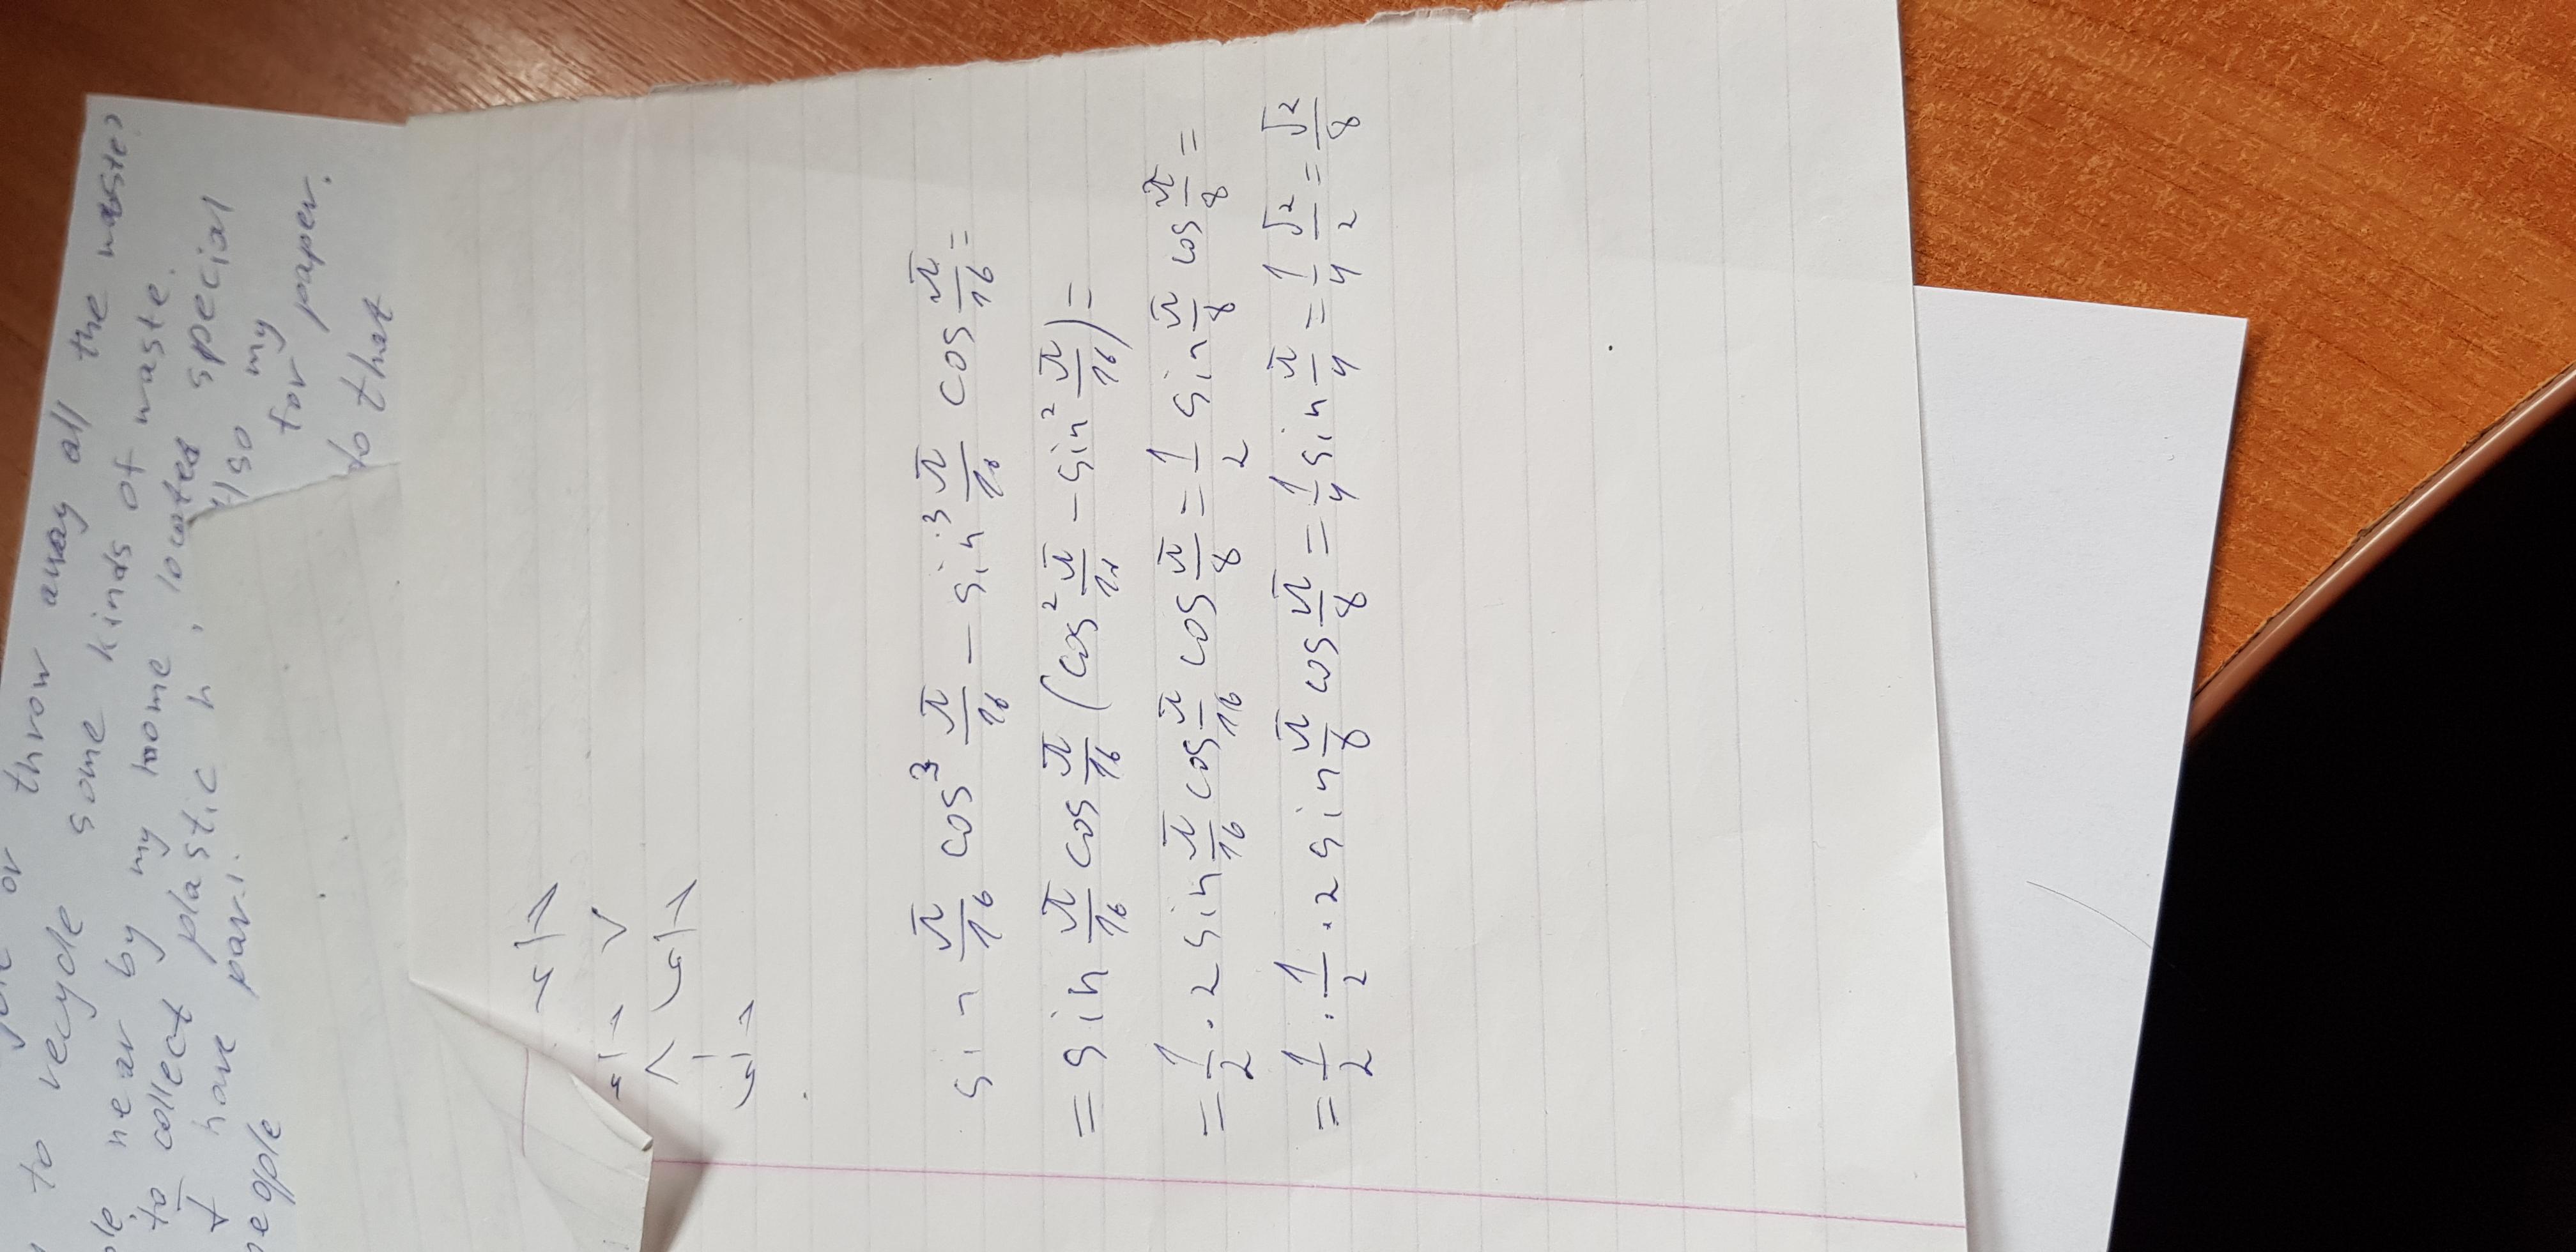 throw away all the waste?
to recycle some kinds of waste.
near by my home, located special
to collect plastic
I have
for paper.
to that
people
sin π/16 cos³ π/16 − sin³ π/16 cos π/16 =
= sin π/16 cos π/16 (cos² π/16 − sin² π/16) =
= 1/2 · 2 sin π/16 cos π/16 cos π/8 = 1/2 sin π/8 cos π/8 =
= 1/2 · 1/2 · 2 sin π/8 cos π/8 = 1/4 sin π/4 = 1/4 √2/2 = √2/8